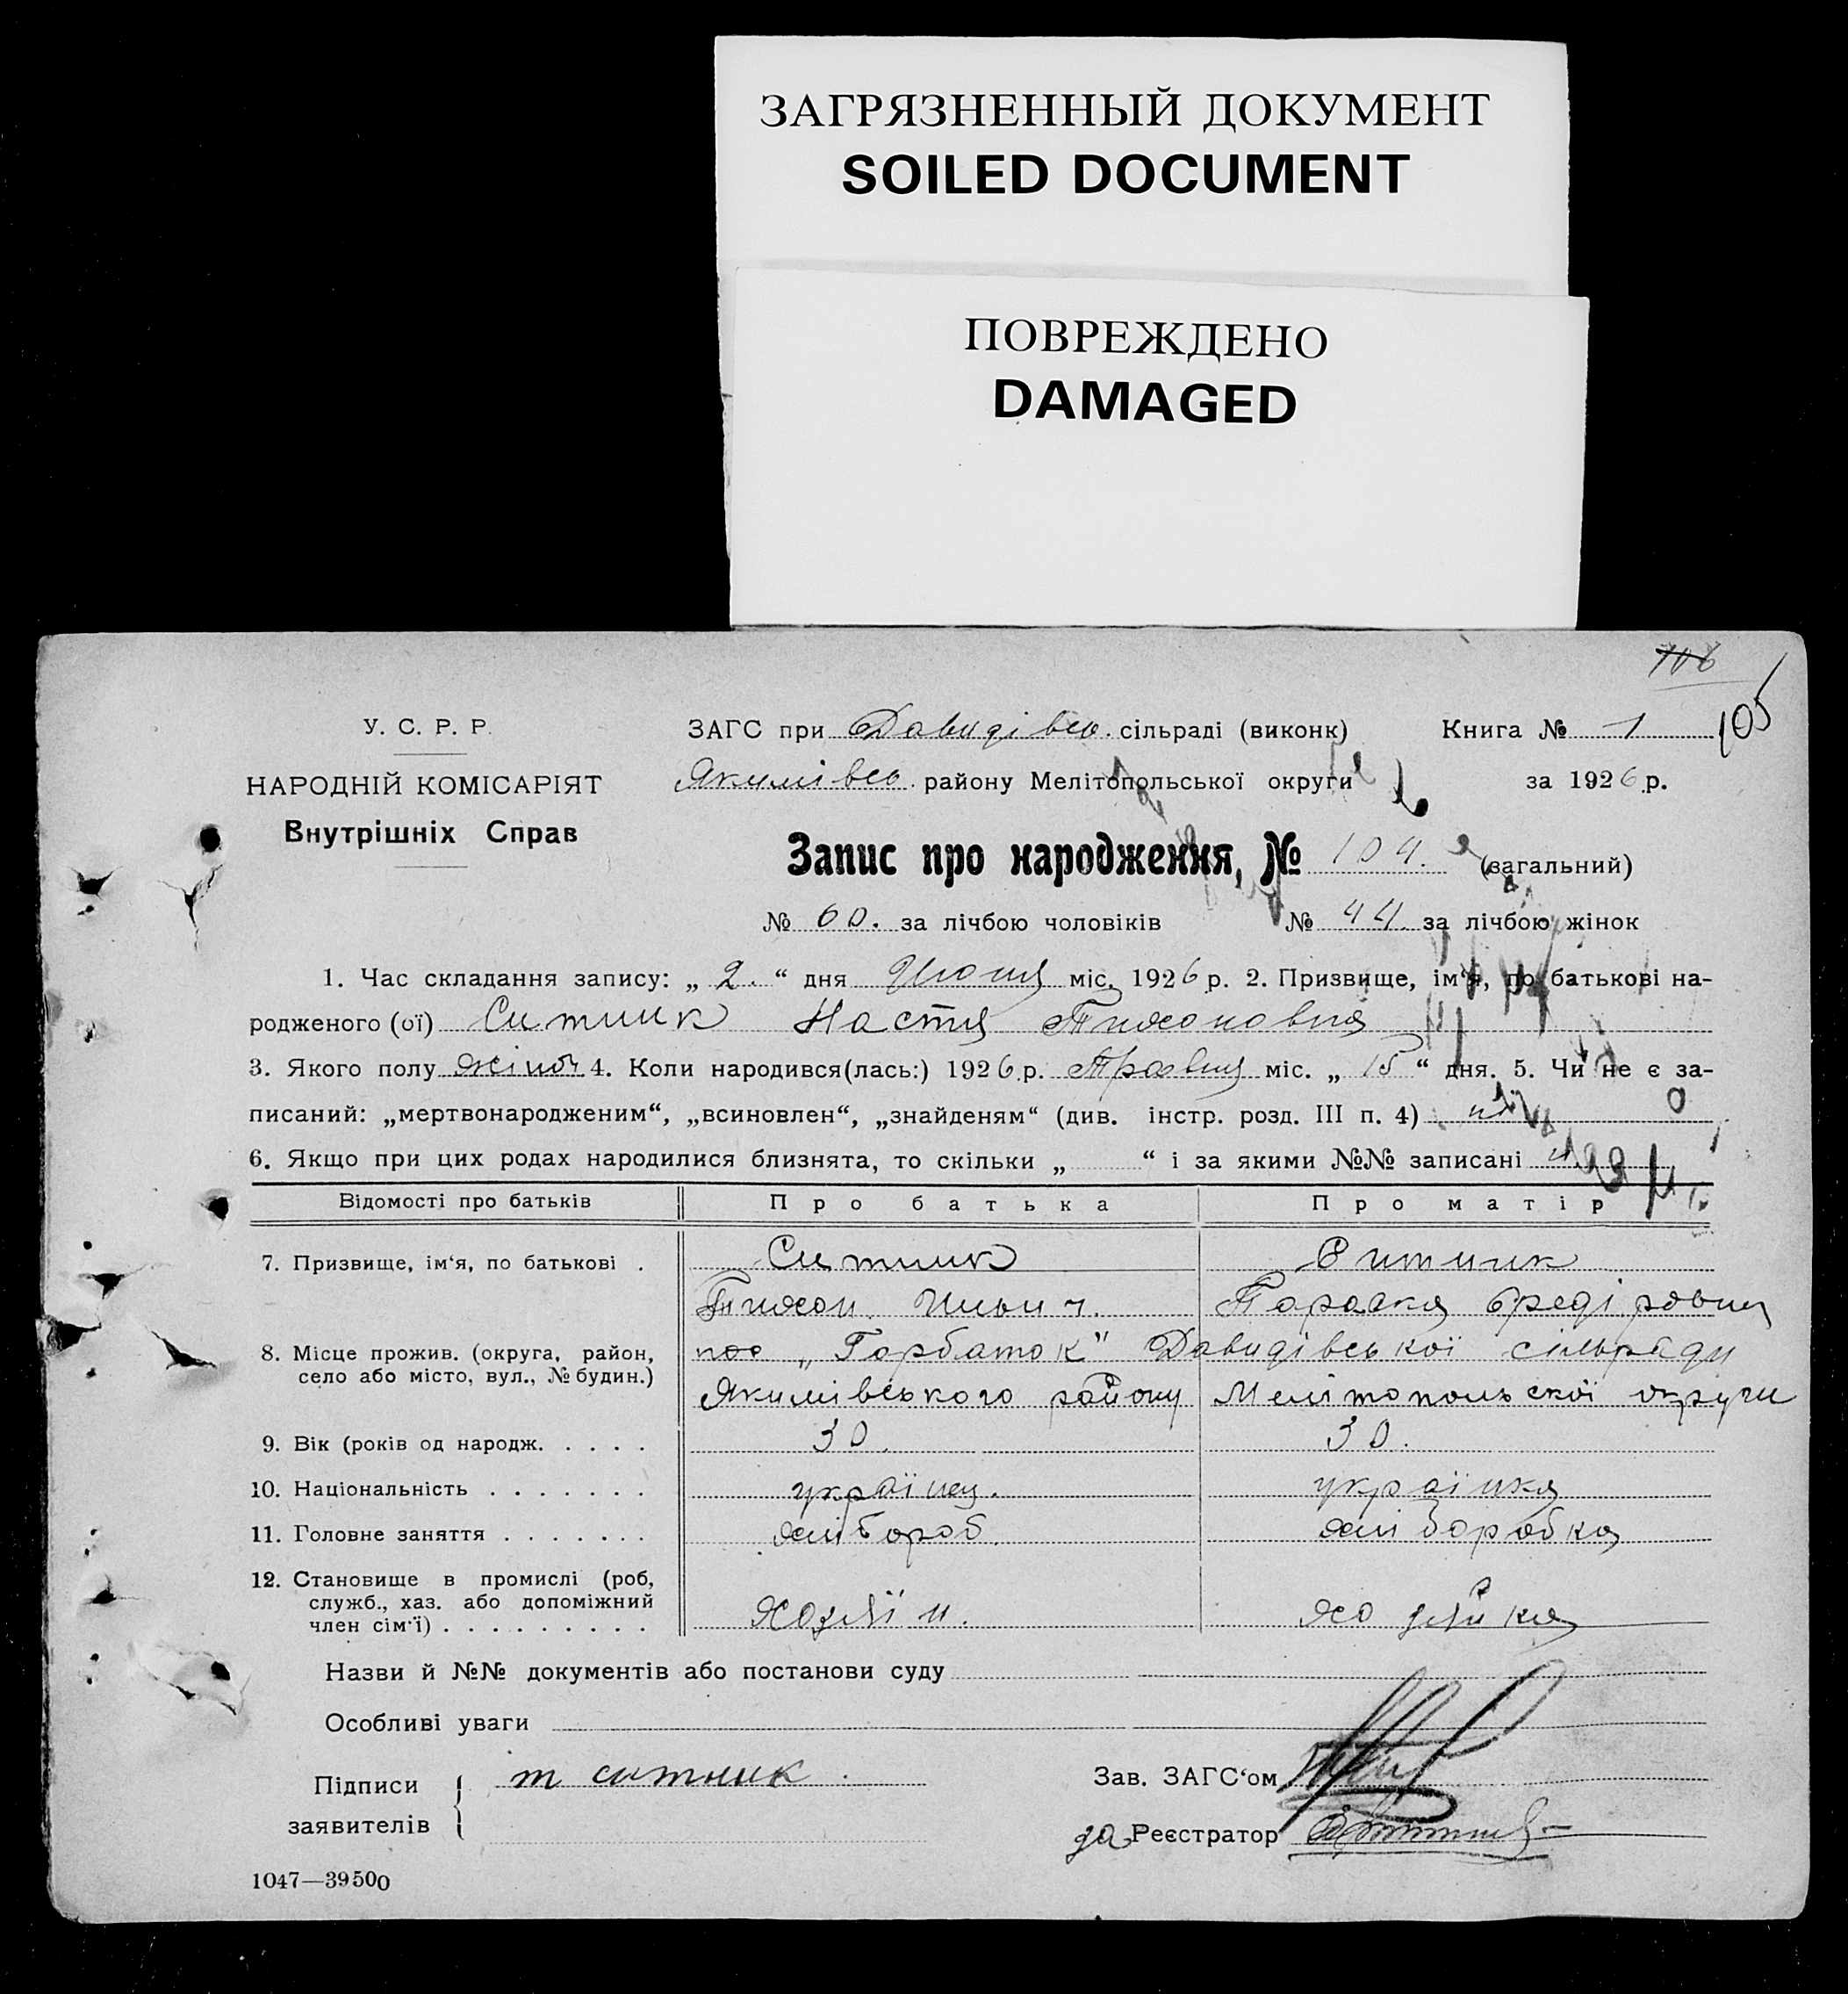 ЗАГРЯЗНЕННЫЙ ДОКУМЕНТ
SOILED DOCUMENT
ПОВРЕЖДЕНО
DAMAGED
106
105
У. С. Р. Р.
НАРОДНІЙ КОМІСАРІЯТ
Внутрішніх Справ
ЗАГС при Давидівсь. сільраді (виконк) Книга № 1
Якимівсь. району Мелітопольської округи за 1926 р.
Запис про народження, № 104. (загальний)
№ 60. за лічбою чоловіків № 44. за лічбою жінок
1. Час складання запису: „ 2. “ дня Июня міс. 1926 р. 2. Призвище, ім‘я, по батькові на-
родженого (ої) Ситник Настя Тихоновна
3. Якого полу жіноч 4. Коли народився(лась:) 1926 р. Травня міс. „ 15 “ дня. 5. Чи не є за-
писаний: „мертвонародженим“, „всиновлен“, „знайденям“ (див. інстр. розд. III п. 4)
6. Якщо при цих родах народилися близнята, то скільки „ “ і за якими №№ записані
Відомості про батьків Про батька Про матір
7. Призвище, ім‘я, по батькові . Ситник Ситник
Тихон Ильич. Параска
8. Місце прожив. (округа, район, село або місто, вул., № будин.) пос „Горбаток" Давидівської сільради
Якимівського району Мелітопольскої округи
9. Вік (років од народж. . . . . 30. 30.
10. Національність . . . . . . . українец. українка
11. Головне заняття . . . . . . . хлібороб. хліборобка
12. Становище в промислі (роб, служб., хаз. або допоміжний член сім‘ї) . . . . . . . . . хозяїн. хозяйка
Назви й №№ документів або постанови суду
Особливі уваги
Підписи заявителів { т ситник
Зав. ЗАГС‘ом
за Реєстратор
1047—39500